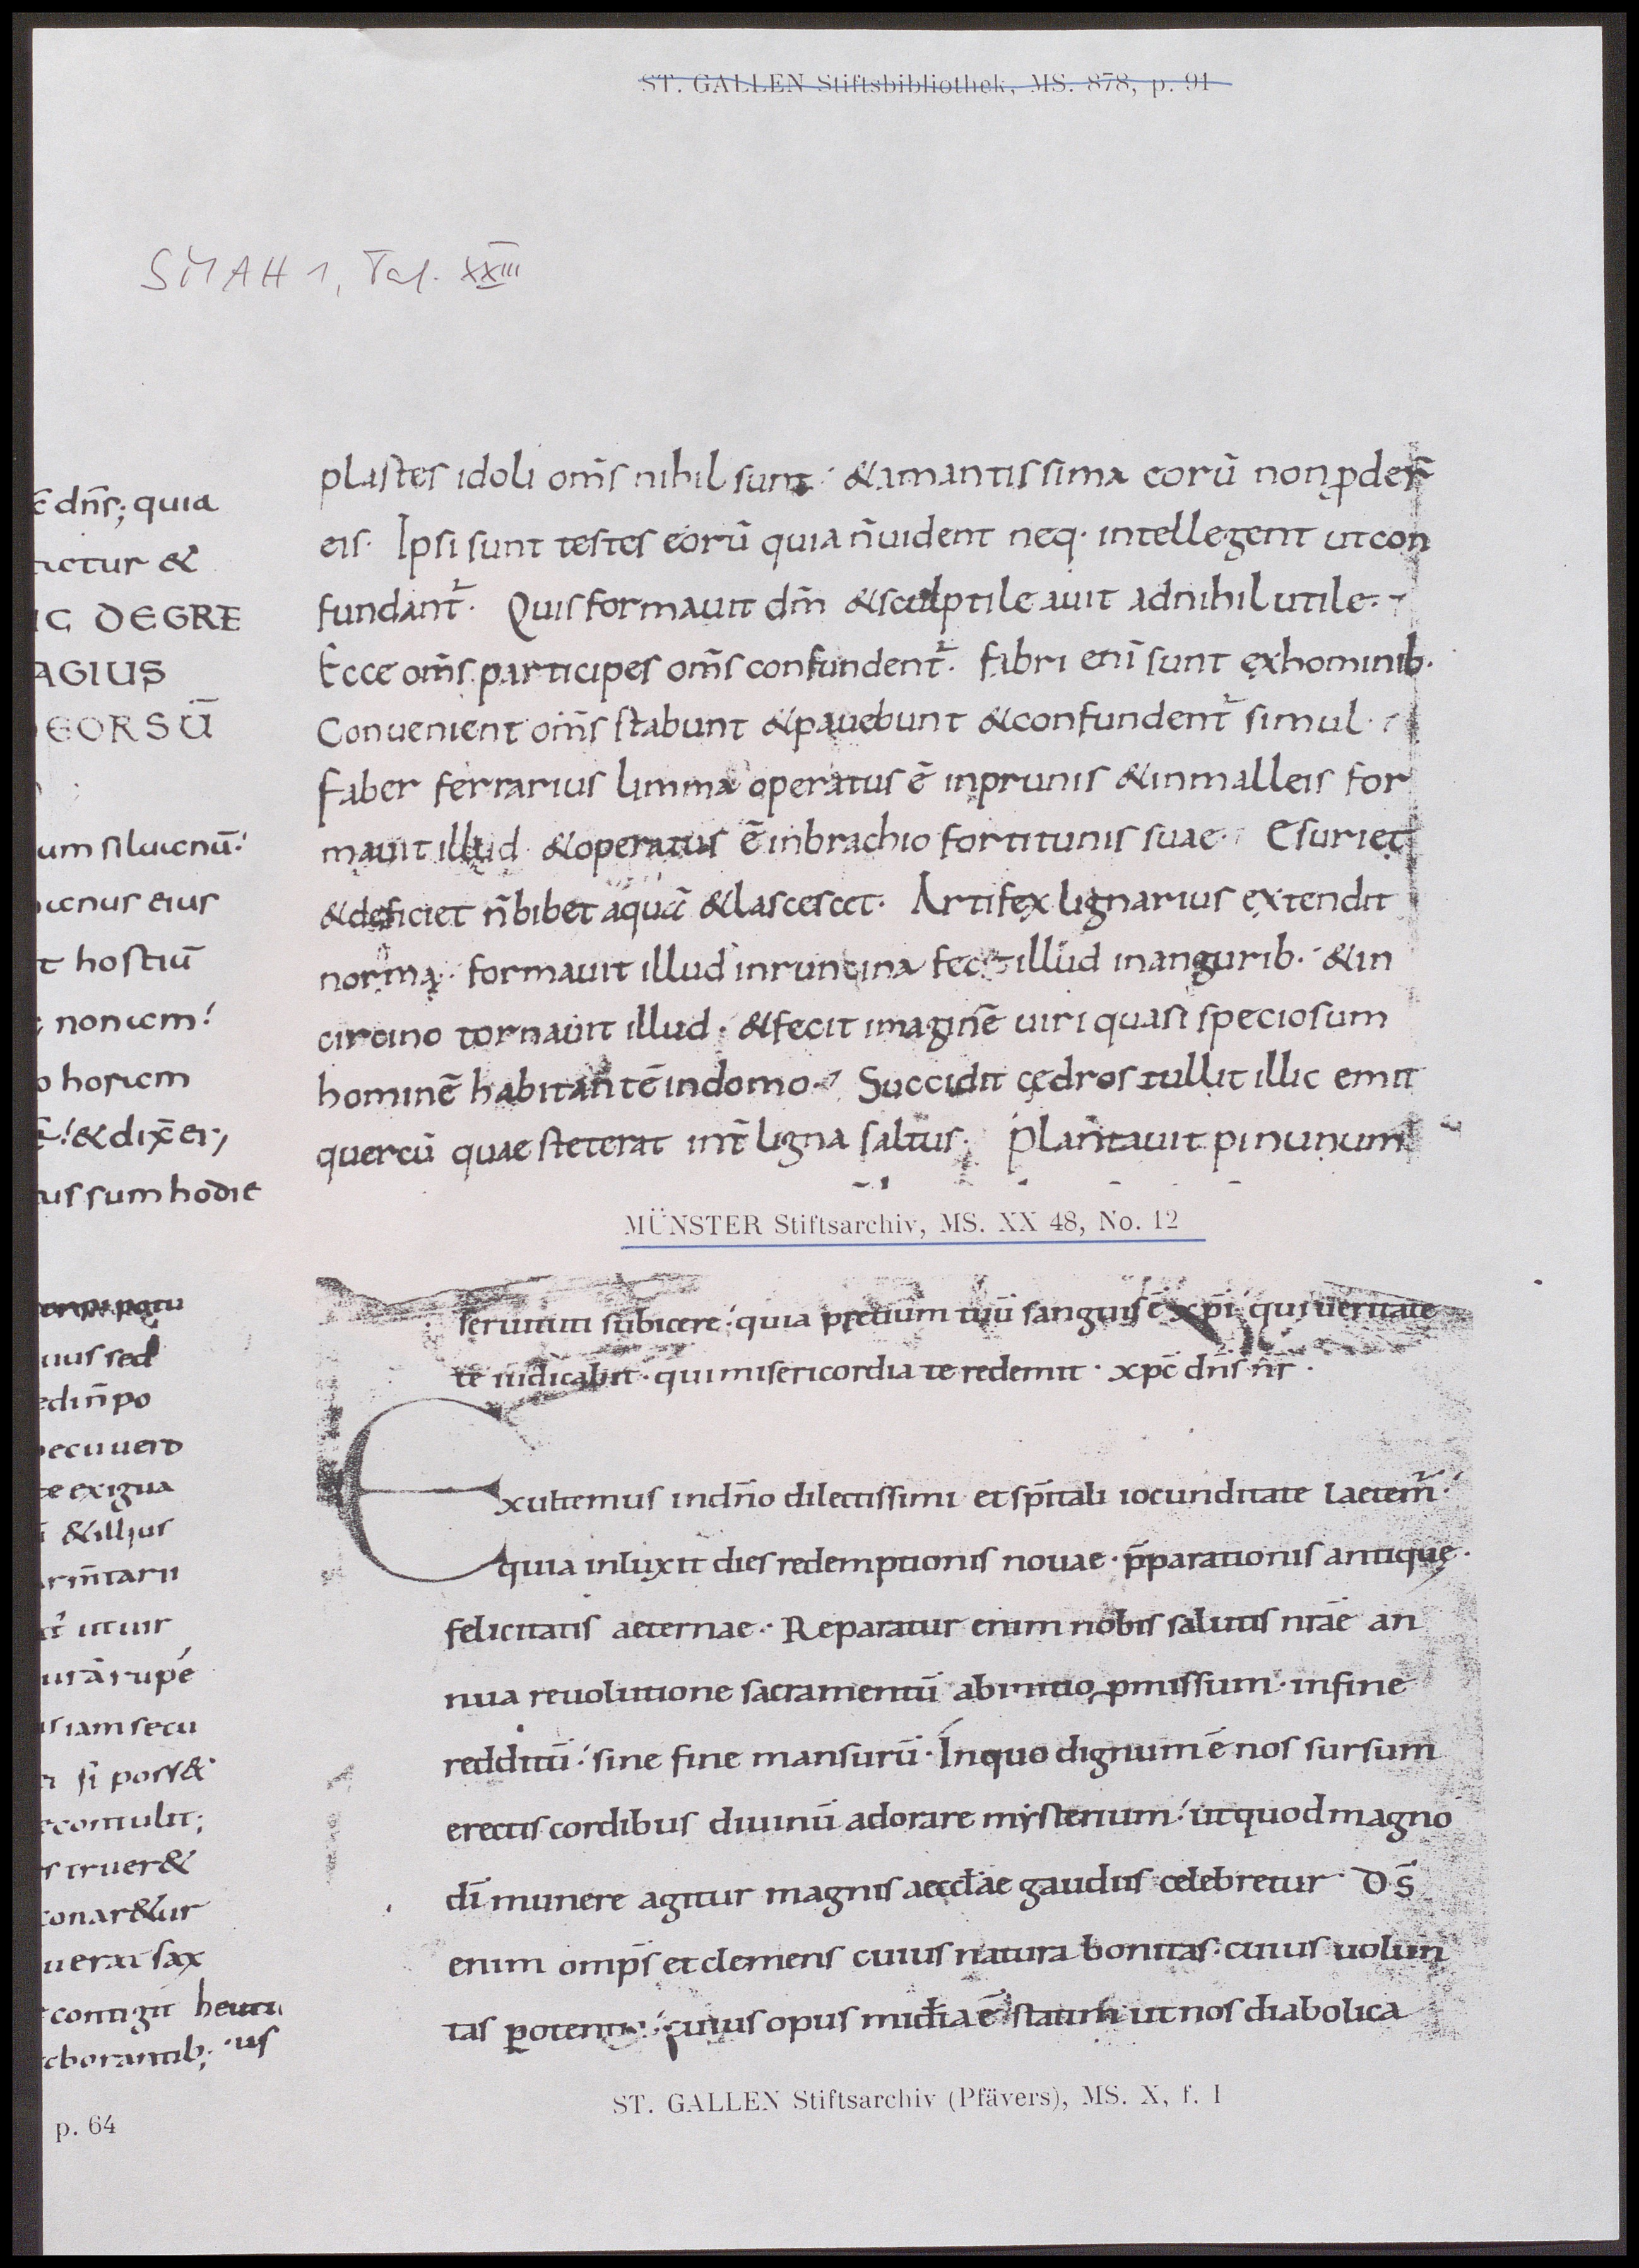 ST. GALLEN Stiftsbibliothek, MS. 878, p. 91
SMAH 1, Taf. XXIII
ē dn̄s; quia
ictur &
IC DEGRE
AGIUS
EORSŪ
um siluicnū:
icnus eius
t hostiū
nonicm!
horicm
& dix̄ ei,
us sum hodie
uus sed
edin̄ po
ecu uero
te exigua
& illius
rm̄tarii
ut uir
rupē
s iam secu
si poss&
contulit;
s truer&
conar&ur
uerat sax
contigit heutu
eborantib; us
p. 64
plastes idoli om̄s nihil sunt · & amantissima eorū non ꝓder̄
eis · Ipsi sunt testes eorū quia n̄ uident neq· intellegent ut con
fundant᷒ · Quis formauit dm̄ & sculptile auit ad nihil utile ·
Ecce om̄s participes om̄s confundent᷒ · fabri eni sunt ex hominib·
Conuenient om̄s stabunt & pauebunt & confundent᷒ simul ·
faber ferrarius limma operatus ē in prunis & in malleis for
mauit illud & operatus ē in brachio fortitunis suae · Esuriet
& deficiet n̄ bibet aquā & lascescet · Artifex lignarius extendit
normā · formauit illud in runcina fecit illud in angurib· & in
circino tornauit illud · & fecit imaginē uiri quasi speciosum
hominē habitantē in domo · Succidit cędros tullit illic emit
quercū quae steterat int̄ ligna saltus · Plantauit pinunum
MÜNSTER Stiftsarchiv, MS. XX 48, No. 12
seruituti subicere · quia pretium tuū sanguis ē xp̄i · qui ueritate
te iudicabit · qui misericordia te redemit · xp̄c dn̄s n̄r ·
Exultemus in dn̄o dilectissimi et sp̄itali iocunditate laetem᷒ ·
quia inluxit dies redemptionis nouae · p̄parationis antiquę ·
felicitatis aeternae · Reparatur enim nobis salutis n̄rae an
nua reuolutione sacramentū ab initio ꝓmissum · in fine
redditū · sine fine mansurū · In quo dignum ē nos sursum
erectis cordibus diuinū adorare mysterium · ut quod magno
dī munere agitur magnis aecclae gaudiis celebretur · Ds̄
enim omp̄s et clemens cuius natura bonitas · cuius uolun
tas potentia · cuius opus mid̄ia ē · statim ut nos diabolica
ST. GALLEN Stiftsarchiv (Pfävers), MS. X, f. I